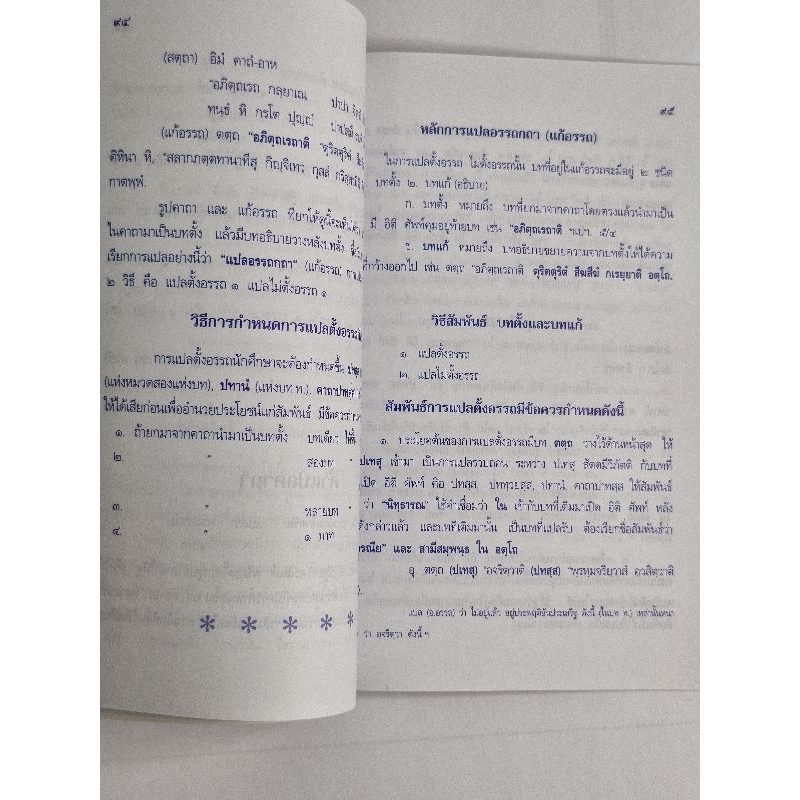 ๙๔
(สตฺถา) อิมํ คาถํ-อาห
"อภิตฺถเรถ กลฺยาเณ ปาปา
ทนฺธํ หิ กรโต ปุญฺญํ ปาปสฺมึ
(แก้อรรถ) ตตฺถ "อภิตฺถเรถาติ "ตุริตตุริตํ
คิหินา หิ, "สลากภตฺตทานาทีสุ กิญฺจิเทว กุสลํ
กาตพฺพํ.
รูปคาถา และ แก้อรรถ ที่ยกให้ดูนี้จะเห็น
ในคาถามาเป็นบทตั้ง แล้วมีบทอธิบายวางหลังบทตั้ง
เรียกการแปลอย่างนี้ว่า "แปลอรรถกถา" (แก้อรรถ)
๒ วิธี คือ แปลตั้งอรรถ ๑ แปลไม่ตั้งอรรถ ๑
วิธีการกำหนดการแปลตั้งอรรถ
การแปลตั้งอรรถนักศึกษาจะต้องกำหนดขึ้น
(แห่งหมวดสองแห่งบท), ปทานํ (แห่งบท ท.), คาถาปาทสฺส
ให้ได้เสียก่อนเพื่ออำนวยประโยชน์แก่สัมพันธ์ มีข้อควร
๑. ถ้ายกมาจากคาถานำมาเป็นบทตั้ง บทเดียว ให้ขึ้น
๒. " สองบท "
๓. " หลายบท "
๔. " ๑ บาท "
* * * * *
๙๕
หลักการแปลอรรถกถา (แก้อรรถ)
ในการแปลตั้งอรรถ ไม่ตั้งอรรถนั้น บทที่อยู่ในแก้อรรถจะมีอยู่ ๒ ชนิด
บทตั้ง ๒. บทแก้ (อธิบาย)
ก. บทตั้ง หมายถึง บทที่ยกมาจากคาถาโดยตรงแล้วนำมาเป็น
มี อิติ ศัพท์คุมอยู่ท้ายบท เช่น "อภิตฺถเรถาติ
ข. บทแก้ หมายถึง บทอธิบายขยายความจากบทตั้งให้ได้ความ
ที่กว้างออกไป เช่น ตตฺถ "อภิตฺถเรถาติ ตุริตตุริตํ สีฆสีฆํ กเรยฺยาติ อตฺโถ.
วิธีสัมพันธ์ บทตั้งและบทแก้
๑. แปลตั้งอรรถ
๒. แปลไม่ตั้งอรรถ
สัมพันธ์การแปลตั้งอรรถมีข้อควรกำหนดดังนี้
๑. ประโยคต้นของการแปลตั้งอรรถมีบท ตตฺถ วางไว้ด้านหน้าสุด ให้
ปเทสุ เข้ามา เป็นการแปลรวบถอน ระหว่าง ปเทสุ สัตตมีวิภัตติ กับบทที่
เปิด อิติ ศัพท์ คือ ปทสฺส, ปททฺวยสฺส, ปทานํ, คาถาปาทสฺส ให้สัมพันธ์
ว่า "นิทฺธารณ" ใช้คำเชื่อมว่า ใน เข้ากับบทที่เติมมาเปิด อิติ ศัพท์ หลัง
ดังกล่าวแล้ว และบทที่เติมมานั้น เป็นบทที่แปลรับ ต้องเรียกชื่อสัมพันธ์ว่า
รณีย" และ สามีสมฺพนฺธ ใน อตฺโถ
อุ. ตตฺถ (ปเทสุ) "อจริตฺวาติ (ปทสฺส) "พฺรหฺมจริยวาสํ อวสิตฺวาติ
แปล (อ.อรรถ) ว่า ไม่อยู่แล้ว อยู่ประพฤติอันประเสริฐ ดังนี้ (ในบท ท.) เหล่านั้นหนา
ว่า อจริตฺวา ดังนี้ ฯ